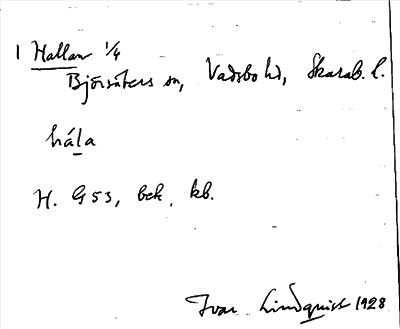 1 Hallan 1/4
Björsäters sn, Vadsbo hd, Skarab. l.
hála
H. G 53, bek. kb.
Ivar Lindquist 1928